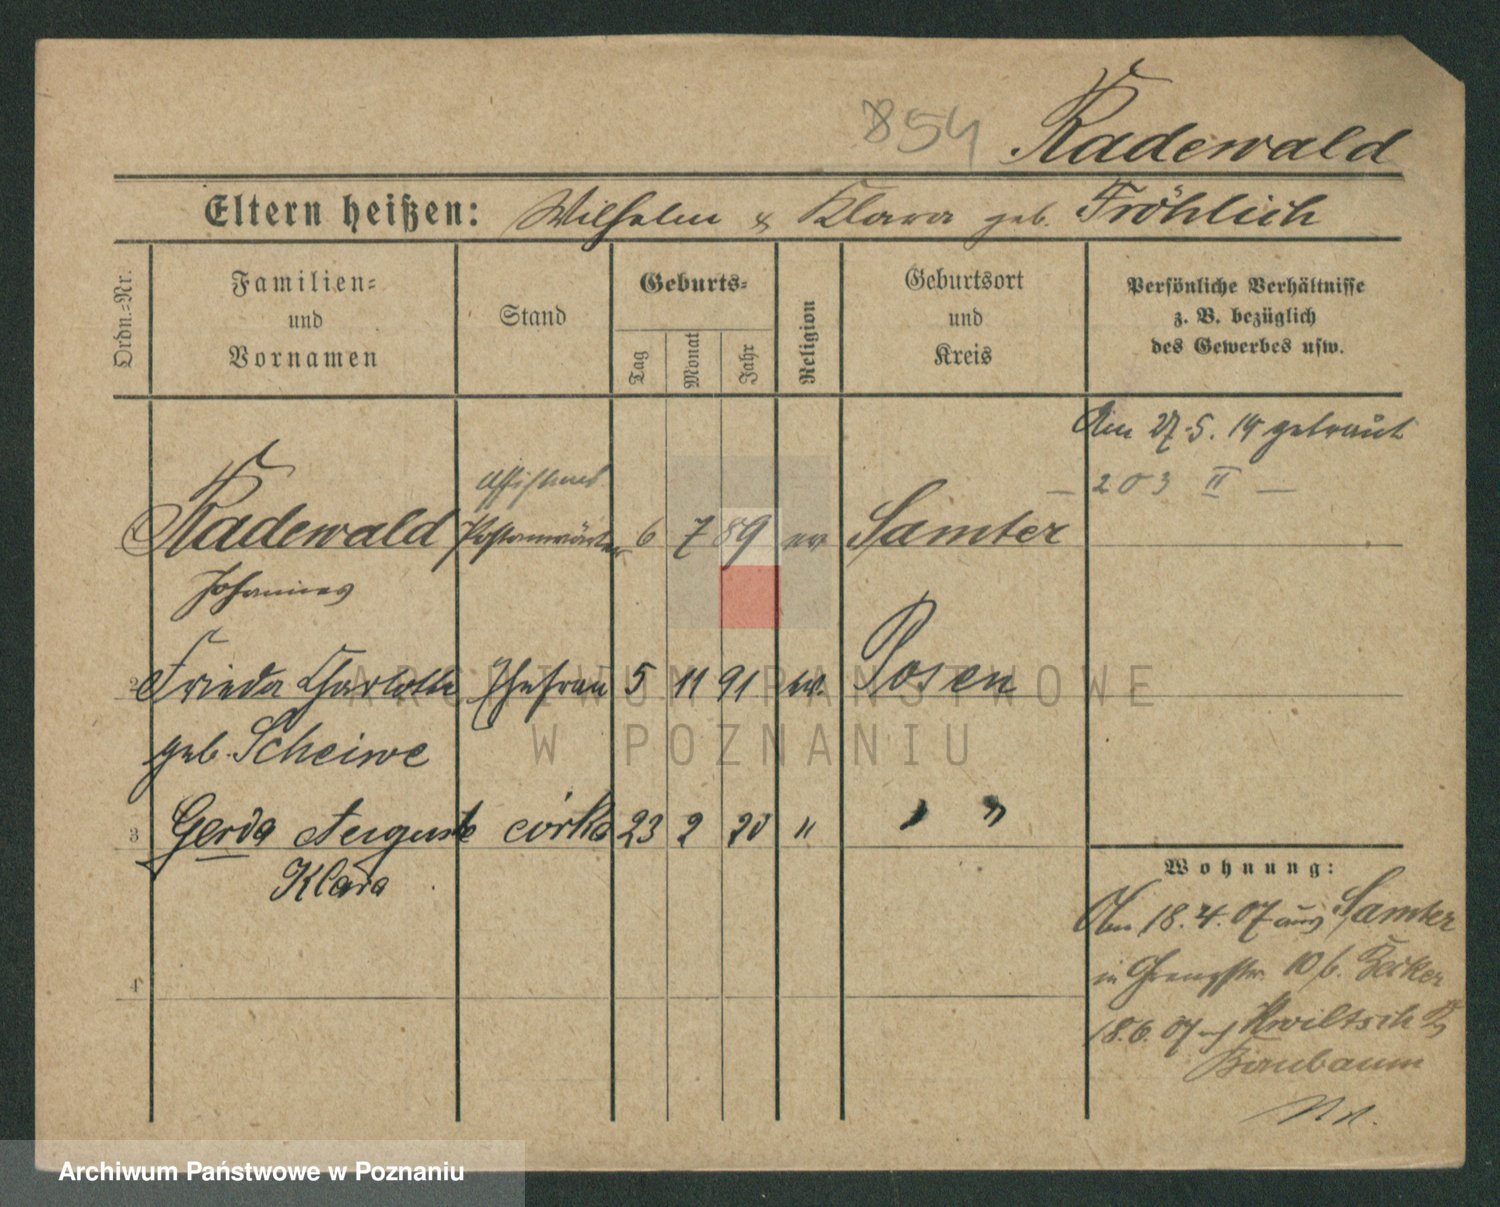 854 Radewald
Eltern heißen: Wilhelm & Klara geb. Fröhlich
Ordn.=Nr.
Familien=
und
Vornamen
Stand
Geburts=
Tag
Monat
Jahr
Religion
Geburtsort
und
Kreis
Persönliche Verhältnisse
z. B. bezüglich
des Gewerbes usw.
Am 27.5.19 getraut
— 203 II —
Assistent
1 Radewald Postanwärter 6 7 89 ev Samter
Johannes
2 Frieda Charlotte Ehefrau 5 11 91 ev. Posen
geb. Scheiwe
3 Gerda Auguste córka 23 2 20 " " "
Klara
4
Wohnung:
Am 18.4.07 aus Samter
in Grenzstr. 10 b.
18.6.07 Kwiltsch
Birnbaum
ARCHIWUM PAŃSTWOWE
W POZNANIU
Archiwum Państwowe w Poznaniu